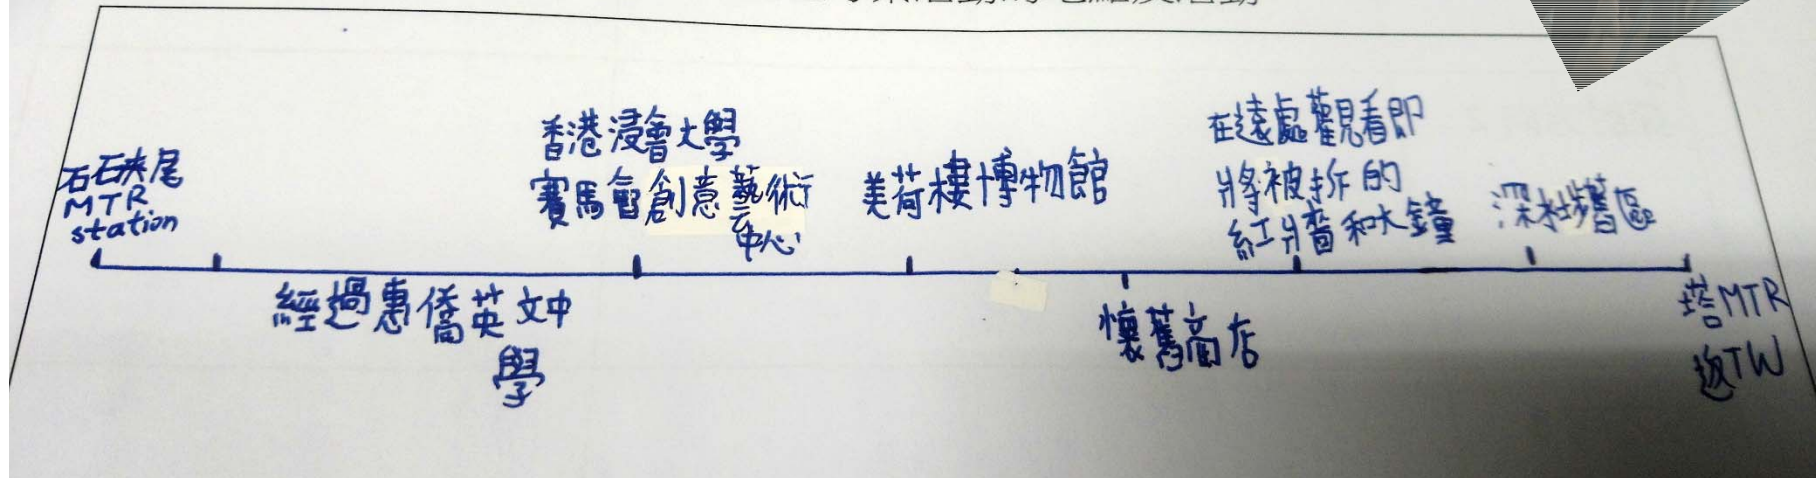 活動的地點及活動
石硤尾
MTR
station
經過惠僑英文中
學
香港浸會大學
賽馬會創意藝術
中心
美荷樓博物館
懷舊商店
在遠處觀看即
將被拆的
紅牆和大鐘
深水埗舊區
塔MTR
返TW